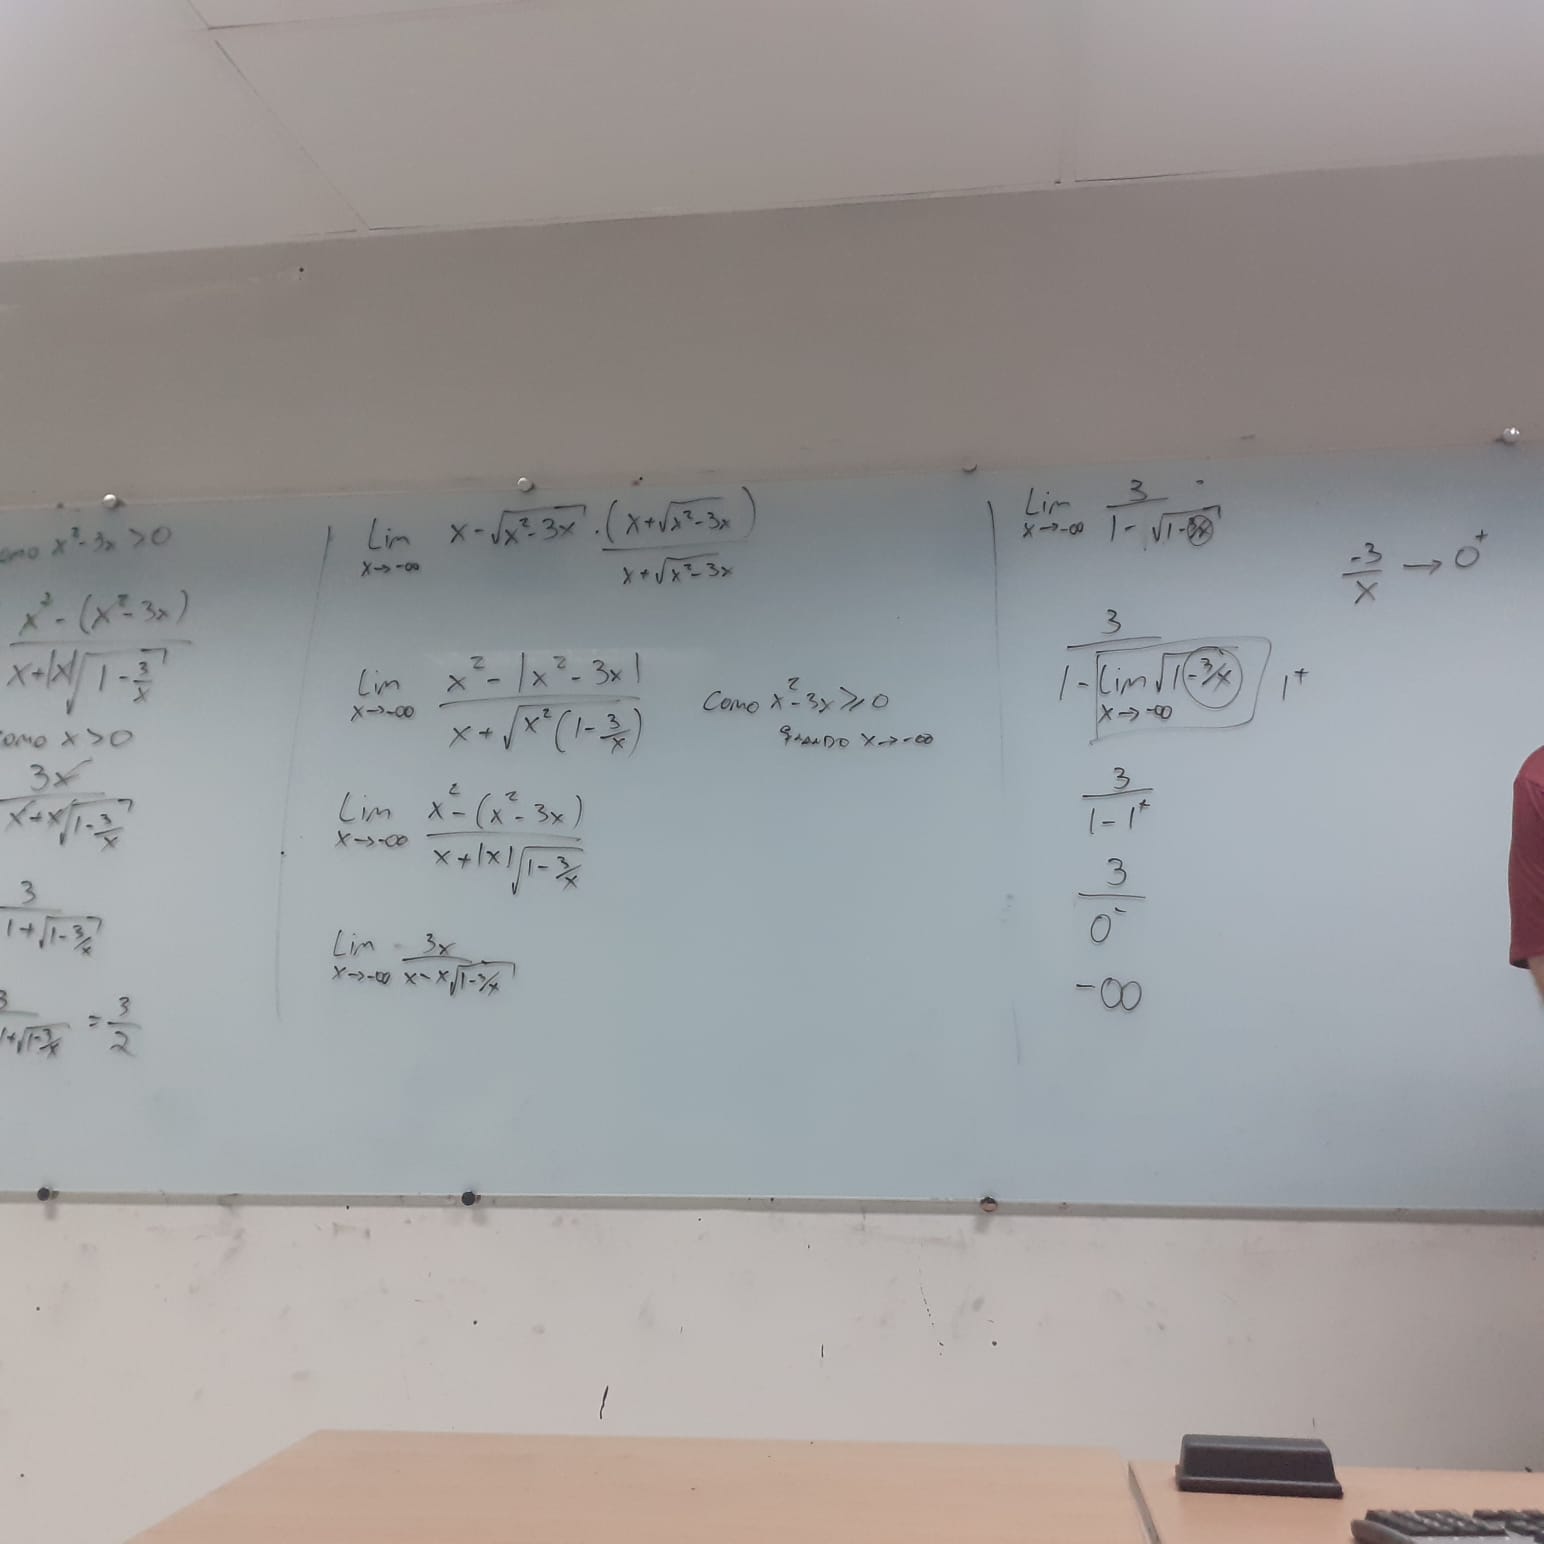 x² - 3x > 0
x² - (x² - 3x)
x + |x|√(1 - 3/x)
x > 0
3x
x + x√(1 - 3/x)
3
1 + √(1 - 3/x)
3
1 + √(1 - 3/x) = 3/2
Lim x - √(x² - 3x) · (x + √(x² - 3x))
x → -∞ x + √(x² - 3x)
Lim x² - |x² - 3x|
x → -∞ x + √(x²(1 - 3/x))
Como x² - 3x ≥ 0
quando x → -∞
Lim x² - (x² - 3x)
x → -∞ x + |x|√(1 - 3/x)
Lim 3x
x → -∞ x - x√(1 - 3/x)
Lim 3
x → -∞ 1 - √(1 - 3/x)
-3/x → 0⁺
3
1 - Lim √(1 - 3/x) 1⁺
x → -∞
3
1 - 1⁺
3
0⁻
-∞